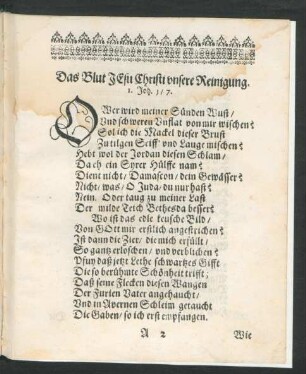 Das Blut JEsu Christi vnsere Reinigung.
1. Joh. 1/ 7.
OWer wird meiner Sünden Wust/
Vnd schweren Vnflat von mir wischen?
Sol ich die Mackel dieser Brust
Zu tilgen Seiff' vnd Lauge mischen?
Hebt wol der Jordan diesen Schlam/
Da eh ein Syrer Hülffe nam?
Dient nicht/ Damascon/ dein Gewässer?
Nicht/ was/ O Juda/ du nur hast?
Nein. Oder taug zu meiner Last
Der milde Teich Bethesda besser?
Wo ist das edle keusche Bild/
Von GOtt mir erstlich angestrichen?
Ist dann die Zier/ die mich erfüllt/
So gantz erloschen/ vnd verblichen?
Pfuy daß jetzt Lethe schwartzes Gifft
Die so berühmte Schönheit trifft;
Daß seine Flecken diesen Wangen
Der Furien Vater angehaucht/
Vnd in Avernen Schleim getaucht
Die Gaben/ so ich erst empfangen.
A 2 Wie